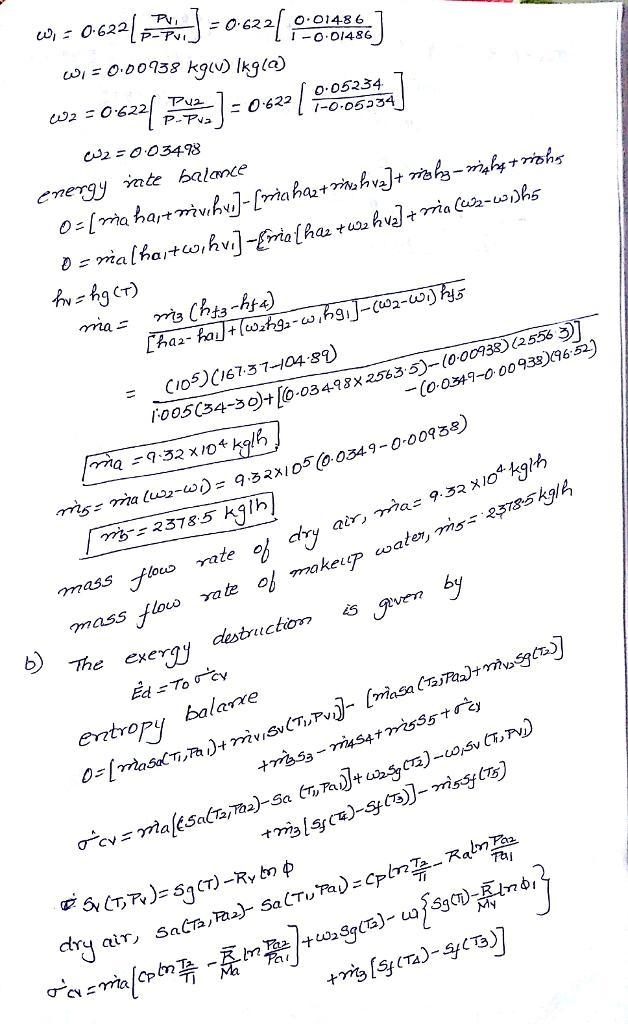 ω₁ = 0.622 [Pv₁ / P-Pv₁] = 0.622 [0.01486 / 1-0.01486]
ω₁ = 0.00938 kg(v) / kg(a)
ω₂ = 0.622 [Pv₂ / P-Pv₂] = 0.622 [0.05234 / 1-0.05234]
ω₂ = 0.03498
energy rate balance
0 = [ṁa ha₁ + ṁv₁hv₁] - [ṁa ha₂ + ṁv₂hv₂] + ṁ₃h₃ - ṁ₄h₄ + ṁ₅h₅
0 = ṁa[ha₁ + ω₁hv₁] - [ṁa[ha₂ + ω₂hv₂] + ṁa(ω₂-ω₁)h₅
hv = hg(T)
ṁa = ṁ₃(hf₃-hf₄) / [ha₂-ha₁] + (ω₂hg₂-ω₁hg₁] - (ω₂-ω₁)hf₅
= (10⁵)(167.37-104.89) / 1.005(34-30) + [(0.03498×2563.5) - (0.00938)(2556.3)] - (0.0349-0.00938)(96.52)
ṁa = 9.32×10⁴ kg/h
ṁ₅ = ṁa(ω₂-ω₁) = 9.32×10⁵(0.0349-0.00938)
ṁ₅ = 2378.5 kg/h
mass flow rate of dry air, ṁa = 9.32×10⁴ kg/h
mass flow rate of makeup water, ṁ₅ = 2378.5 kg/h
b) The exergy destruction is given by
Ėd = T₀ σ̇cv
entropy balance
0 = [ṁasa(T₁,Pa₁) + ṁv₁sv(T₁,Pv₁)] - [ṁasa(T₂,Pa₂) + ṁv₂sg(T₂)]
+ ṁ₃s₃ - ṁ₄s₄ + ṁ₅s₅ + σ̇cv
σ̇cv = ṁa[(sa(T₂,Pa₂) - sa(T₁,Pa₁)] + ω₂sg(T₂) - ω₁sv(T₁,Pv₁)
+ ṁ₃[sf(T₄) - sf(T₃)] - ṁ₅sf(T₅)
sv(T,Pv) = sg(T) - Rv ln φ
dry air, sa(T₂,Pa₂) - sa(T₁,Pa₁) = Cp ln T₂/T₁ - Ra ln Pa₂/Pa₁
σ̇cv = ṁa[Cp ln T₂/T₁ - R̄/Ma ln Pa₂/Pa₁] + ω₂sg(T₂) - ω{sg(T₁) - R̄/Mv ln φ₁}
+ ṁ₃[sf(T₄) - sf(T₃)]